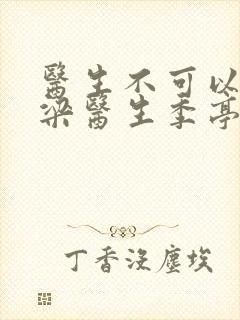 醫生不可以
梁醫生季亭
丁香沒塵埃